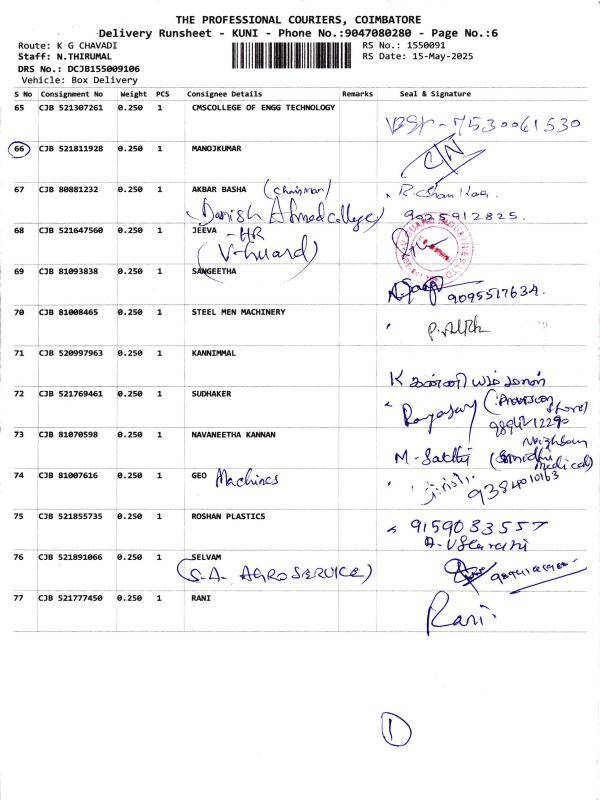 THE PROFESSIONAL COURIERS, COIMBATORE
Delivery Runsheet - KUNI - Phone No.:9047080280 - Page No.:6
Route: K G CHAVADI
RS No.: 1550091
Staff: N.THIRUMAL
RS Date: 15-May-2025
DRS No.: DCJB155009106
Vehicle: Box Delivery
S No Consignment No Weight PCS Consignee Details Remarks Seal & Signature
65 CJB 521307261 0.250 1 CMSCOLLEGE OF ENGG TECHNOLOGY
7530061530
66 CJB 521811928 0.250 1 MANOJKUMAR
C/N
67 CJB 80881232 0.250 1 AKBAR BASHA (Chairman)
(Danish Ahmed college) 9025912825.
68 CJB 521647560 0.250 1 JEEVA - HR
(V-Guard)
69 CJB 81093838 0.250 1 SANGEETHA
9095517634.
70 CJB 81008465 0.250 1 STEEL MEN MACHINERY
71 CJB 520997963 0.250 1 KANNIMMAL
72 CJB 521769461 0.250 1 SUDHAKER
73 CJB 81070598 0.250 1 NAVANEETHA KANNAN
M- Sakthi
medical)
74 CJB 81007616 0.250 1 GEO Machines
9384010163
75 CJB 521855735 0.250 1 ROSHAN PLASTICS
9159033557
76 CJB 521891066 0.250 1 SELVAM
(S.A. AGRO SERVICE)
77 CJB 521777450 0.250 1 RANI
Rani.
1